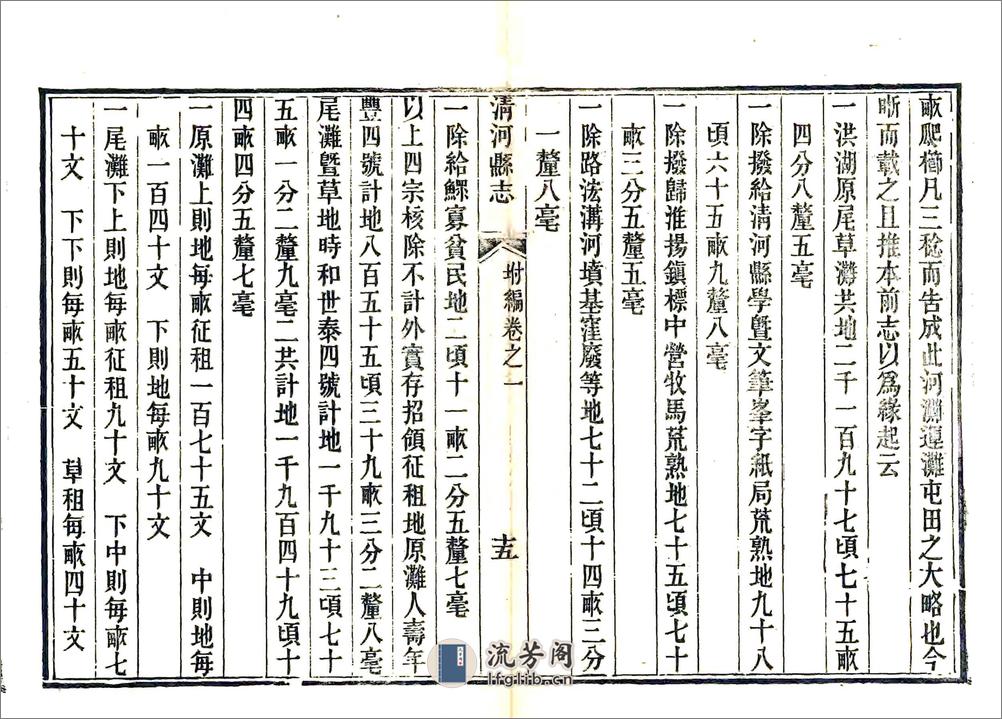 畝爬櫛凡三稔而告成此河湖運灘屯田之大略也今
晰而載之且推本前志以爲緣起云
一洪湖原尾草灘共地二千一百九十七頃七十五畝
四分八釐五毫
一除撥給清河縣學曁文筆峯字紙局荒熟地九十八
頃六十五畝九釐八毫
一除撥歸淮揚鎭標中營牧馬荒熟地七十五頃七十
畝三分五釐五毫
一除路浤溝河墳基窪廢等地七十二頃十四畝三分
一釐八毫
清河縣志 附編卷之一 十五
一除給鰥寡貧民地二頃十一畝二分五釐七毫
以上四宗核除不計外實存招領征租地原灘人壽年
豐四號計地八百五十五頃三十九畝三分二釐八毫
尾灘曁草地時和世泰四號計地一千九十三頃七十
五畝一分二釐九毫二共計地一千九百四十九頃十
四畝四分五釐七毫
一原灘上則地每畝征租一百七十五文 中則地每
畝一百四十文 下則地每畝九十文
一尾灘下上則地每畝征租九十文 下中則每畝七
十文 下下則每畝五十文 草租每畝四十文
流芳阁
lfglib.cn